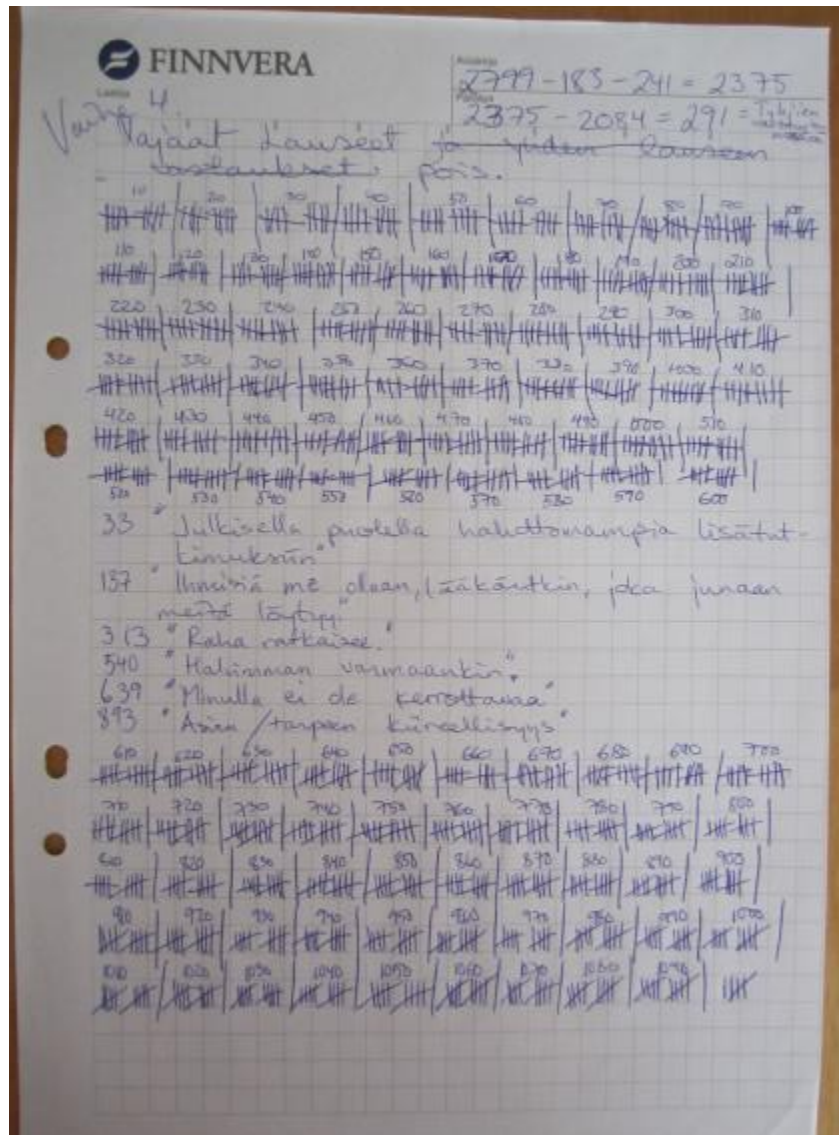 FINNVERA
2799-183-241 = 2375
2375-2084 = 291 =
Vaihe 4.
Vajaat lauseet ja yhden lauseen
vastaukset pois.
10 20 30 40 50 60 70 80 90 100
110 120 130 140 150 160 170 180 190 200 210
220 230 240 250 260 270 280 290 300 310
320 330 340 350 360 370 380 390 400 410
420 430 440 450 460 470 480 490 500 510
520 530 540 550 570 580 590 600
33 "Julkisella puolella haluttomampia lisätut-
kimuksiin"
137 "Ihmisiä me olaan, lääkäritkin, joka junaan
meitä löytyy"
313 "Raha ratkaisee."
540 "Halvimman varmaankin".
639 "Minulla ei ole kerrottavaa"
893 "Asian/tarpeen kiireellisyys"
610 620 630 640 650 660 670 680 690 700
710 720 730 740 750 760 770 780 790 800
810 820 830 840 850 860 870 880 890 900
910 920 930 940 950 960 970 980 990 1000
1010 1020 1030 1040 1050 1060 1070 1080 1090